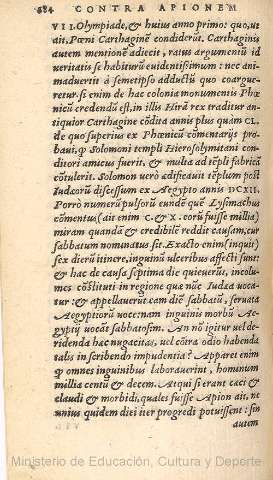 684 CONTRA APIONEM
VII. Olympiade, & huius anno primo: quo, ut
ait, Pœni Carthaginē condiderūt. Carthaginis
autem mentionē adiecit, ratus argumentū id
veritatis se habiturū euidētissimum: nec ani
maduertit à semetipso adductū quo coargue
retur. si enim de hac colonia monumentis Phœ
nicū credendū est, in illis Hirā rex traditur an
tiquior Carthagine cōdita annis plus quàm CL.
de quo superius ex Phœnicū cōmentarijs pro
baui, q̄ Solomoni templi Hierosolymitani con
ditori amicus fuerit, & multa ad tēpli fabricā
cōtulerit. Solomon verò ædificauit tēplum post
Iudæorū discessum ex Aegypto annis DCXII.
Porrò numerū pulsorū eundē quē Lysimachus
cōmentus (ait enim C. & X. eorū fuisse millia)
miram quandā & credibilē reddit causam, cur
sabbatum nominatū sit. Exacto enim (inquit)
sex dierū itinere, inguinū ulceribus affecti sunt:
& hac de causa septima die quieuerūt, incolu-
mes cōstituti in regione quæ nūc Iudæa uoca
tur: & appellauerūt eam diē sabbatū, seruata
Aegyptiorū uoce: nam inguinū morbū Ae-
gyptij uocāt sabbatosim. An nō igitur uel de-
ridenda hæc nugacitas, uel cōtra odio habenda
talis in scribendo impudentia? Apparet enim
q̄ omnes inguinibus laborauerint, hominum
millia centū & decem. Atqui si erant cæci &
claudi & morbidi, quales fuisse Apion ait, ne
unius quidem diei iter progredi potuissent: sin
autem
Ministerio de Educación, Cultura y Deporte